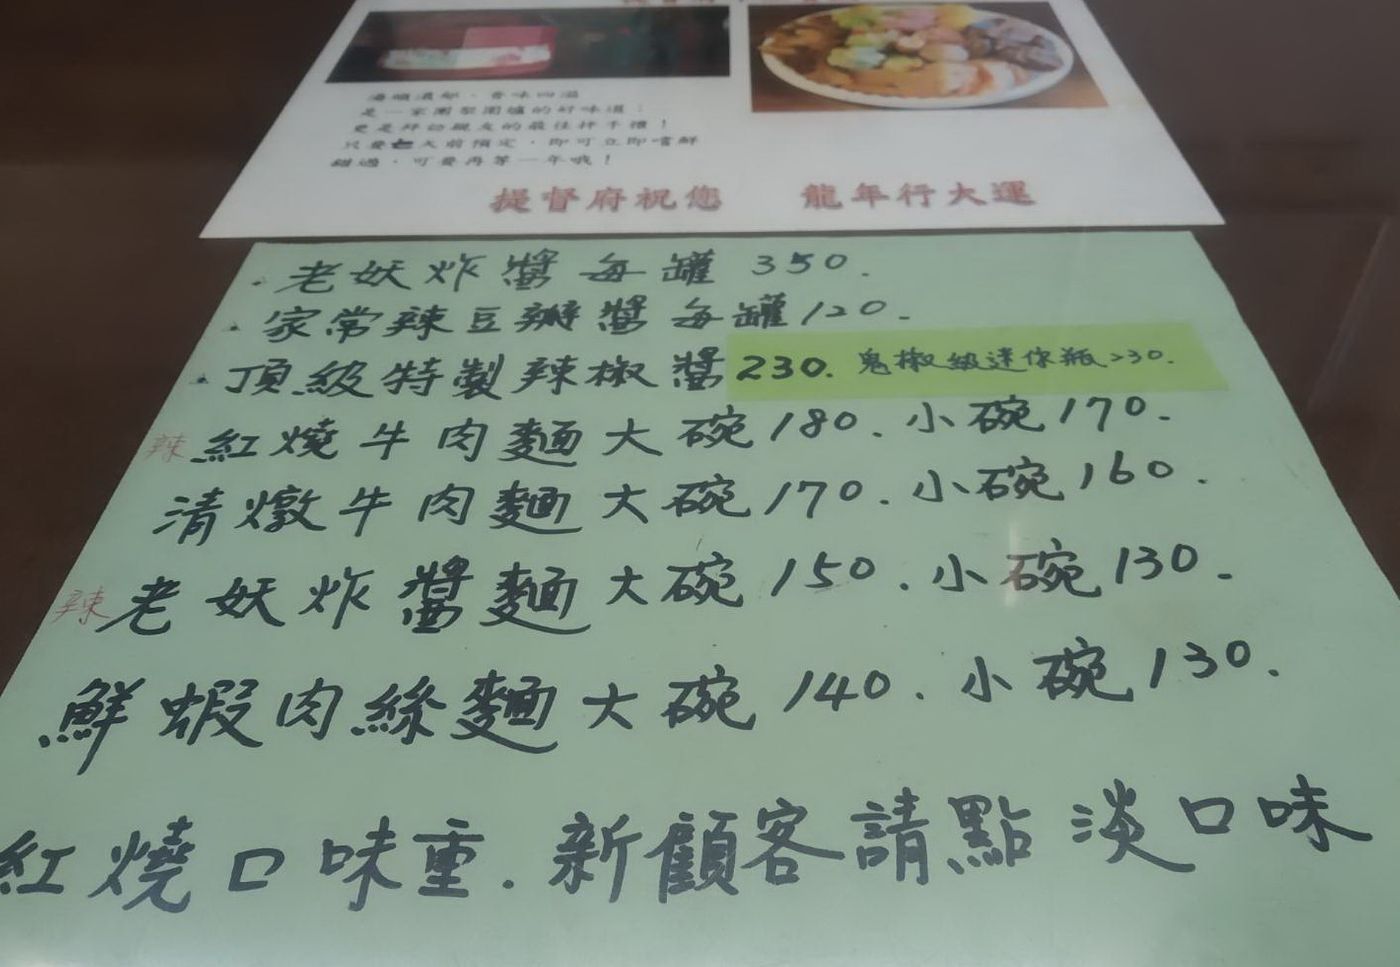 湯頭濃郁、香味四溢
是一家團聚圍爐的好味道；
更是拜訪親友的最佳伴手禮！
只要七天前預定，即可立即嚐鮮
錯過，可要再等一年哦！
提督府祝您 龍年行大運
老妖炸醬每罐 350.
家常辣豆瓣醬每罐120.
頂級特製辣椒醬230. 鬼椒級迷你瓶230.
辣 紅燒牛肉麵大碗180. 小碗170.
清燉牛肉麵大碗170. 小碗160.
辣 老妖炸醬麵大碗150. 小碗130.
鮮蝦肉絲麵大碗140. 小碗130.
紅燒口味重. 新顧客請點淡口味